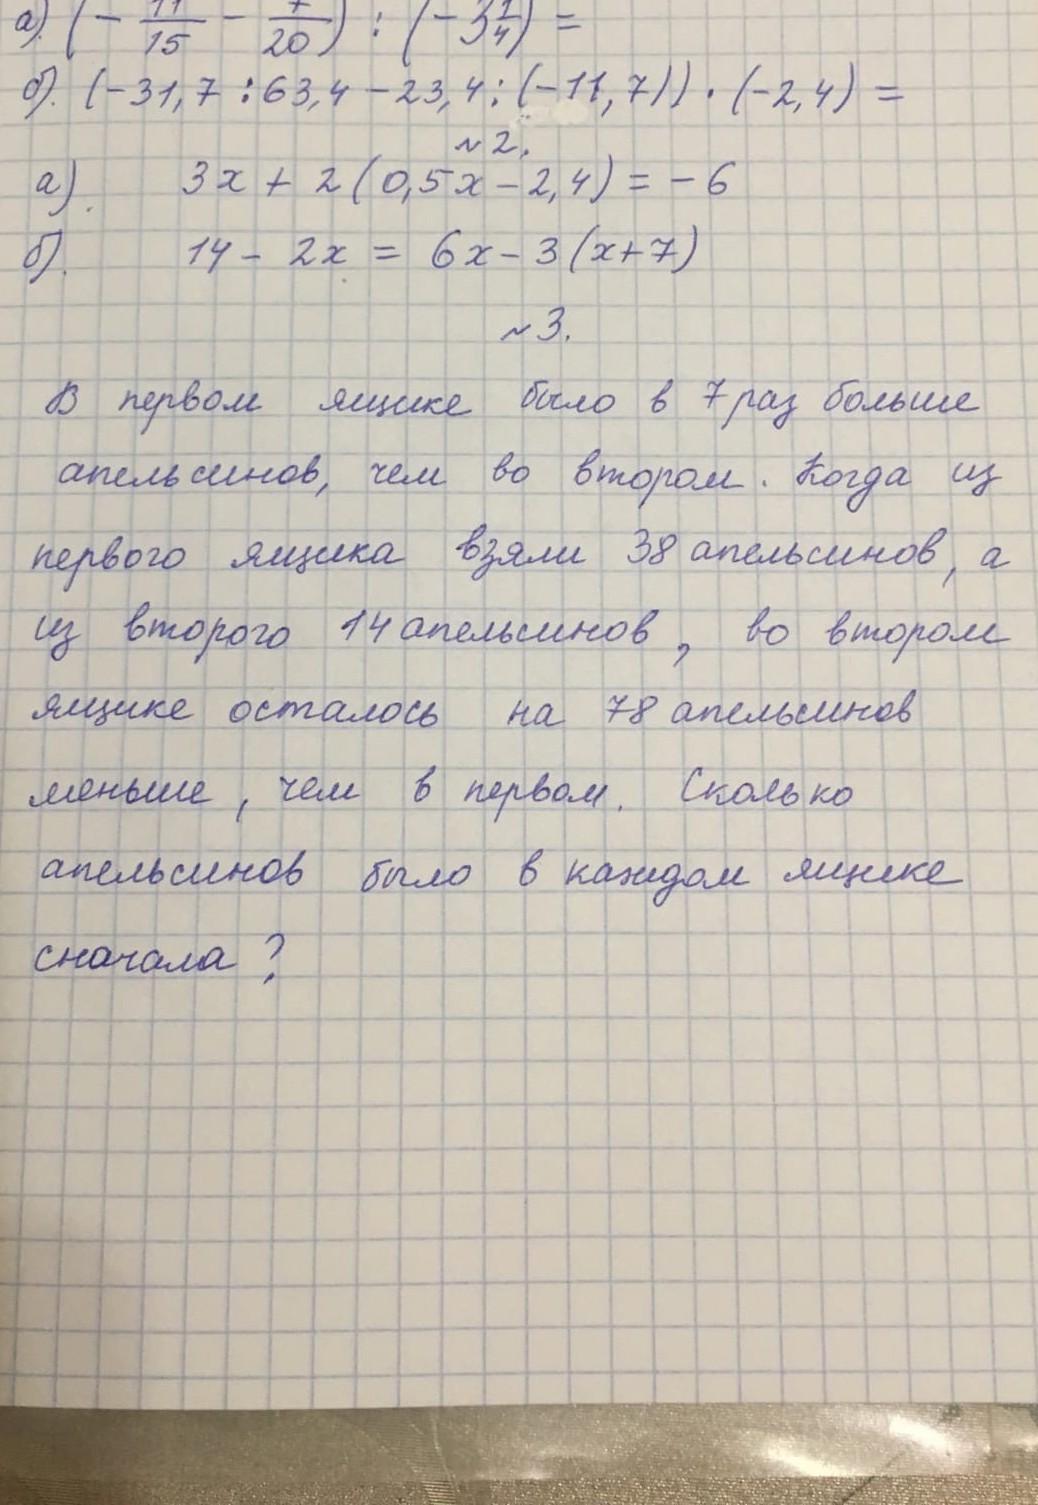 а). (- 11/15 - 7/20) : (-3 1/4) =
б). (-31,7 : 63,4 - 23,4 : (-11,7)) · (-2,4) =
~2.
а) 3x + 2(0,5x - 2,4) = -6
б). 14 - 2x = 6x - 3(x+7)
~3.
В первом ящике было в 7 раз больше
апельсинов, чем во втором. Когда из
первого ящика взяли 38 апельсинов, а
из второго 14 апельсинов, во втором
ящике осталось на 78 апельсинов
меньше, чем в первом. Сколько
апельсинов было в каждом ящике
сначала?